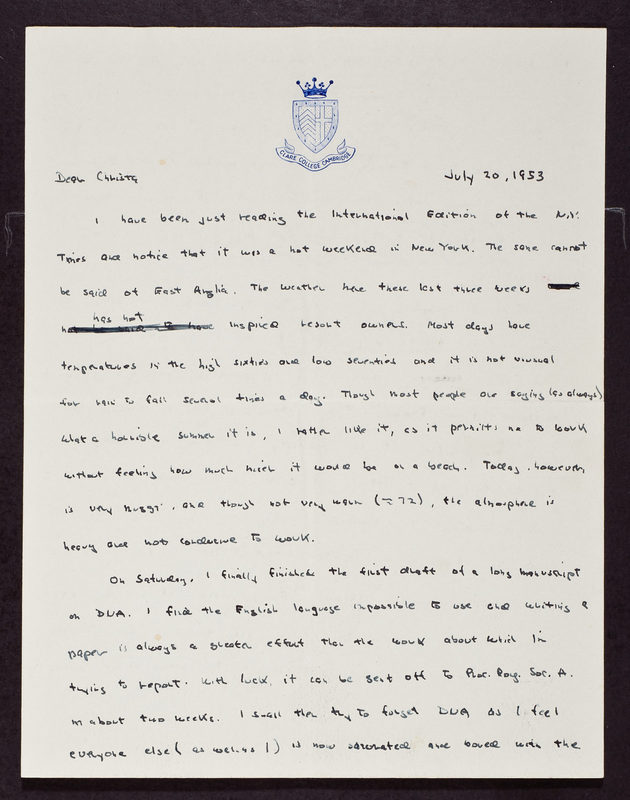 CLARE COLLEGE CAMBRIDGE
Dear Christa
July 20, 1953
I have been just reading the International Edition of the N.Y.
Times and notice that it was a hot weekend in New York. The same cannot
be said of East Anglia. The weather here these last three weeks
has not
inspired resort owners. Most days have
temperatures in the high sixties and low seventies and it is not unusual
for rain to fall several times a day. Though most people are saying (as always)
what a horrible summer it is, I rather like it, as it permits me to work
without feeling how much nicer it would be on a beach. Today, however,
is very muggy, and though not very warm (≈72), the atmosphere is
heavy and not conducive to work.
On Saturday, I finally finished the first draft of a long manuscript
on DNA. I find the English language impossible to use and writing a
paper is always a greater effort than the work about which I'm
trying to report. With luck, it can be sent off to Proc. Roy. Soc. A.
in about two weeks. I shall then try to forget DNA as I feel
everyone else (as well as I) is now saturated and bored with the